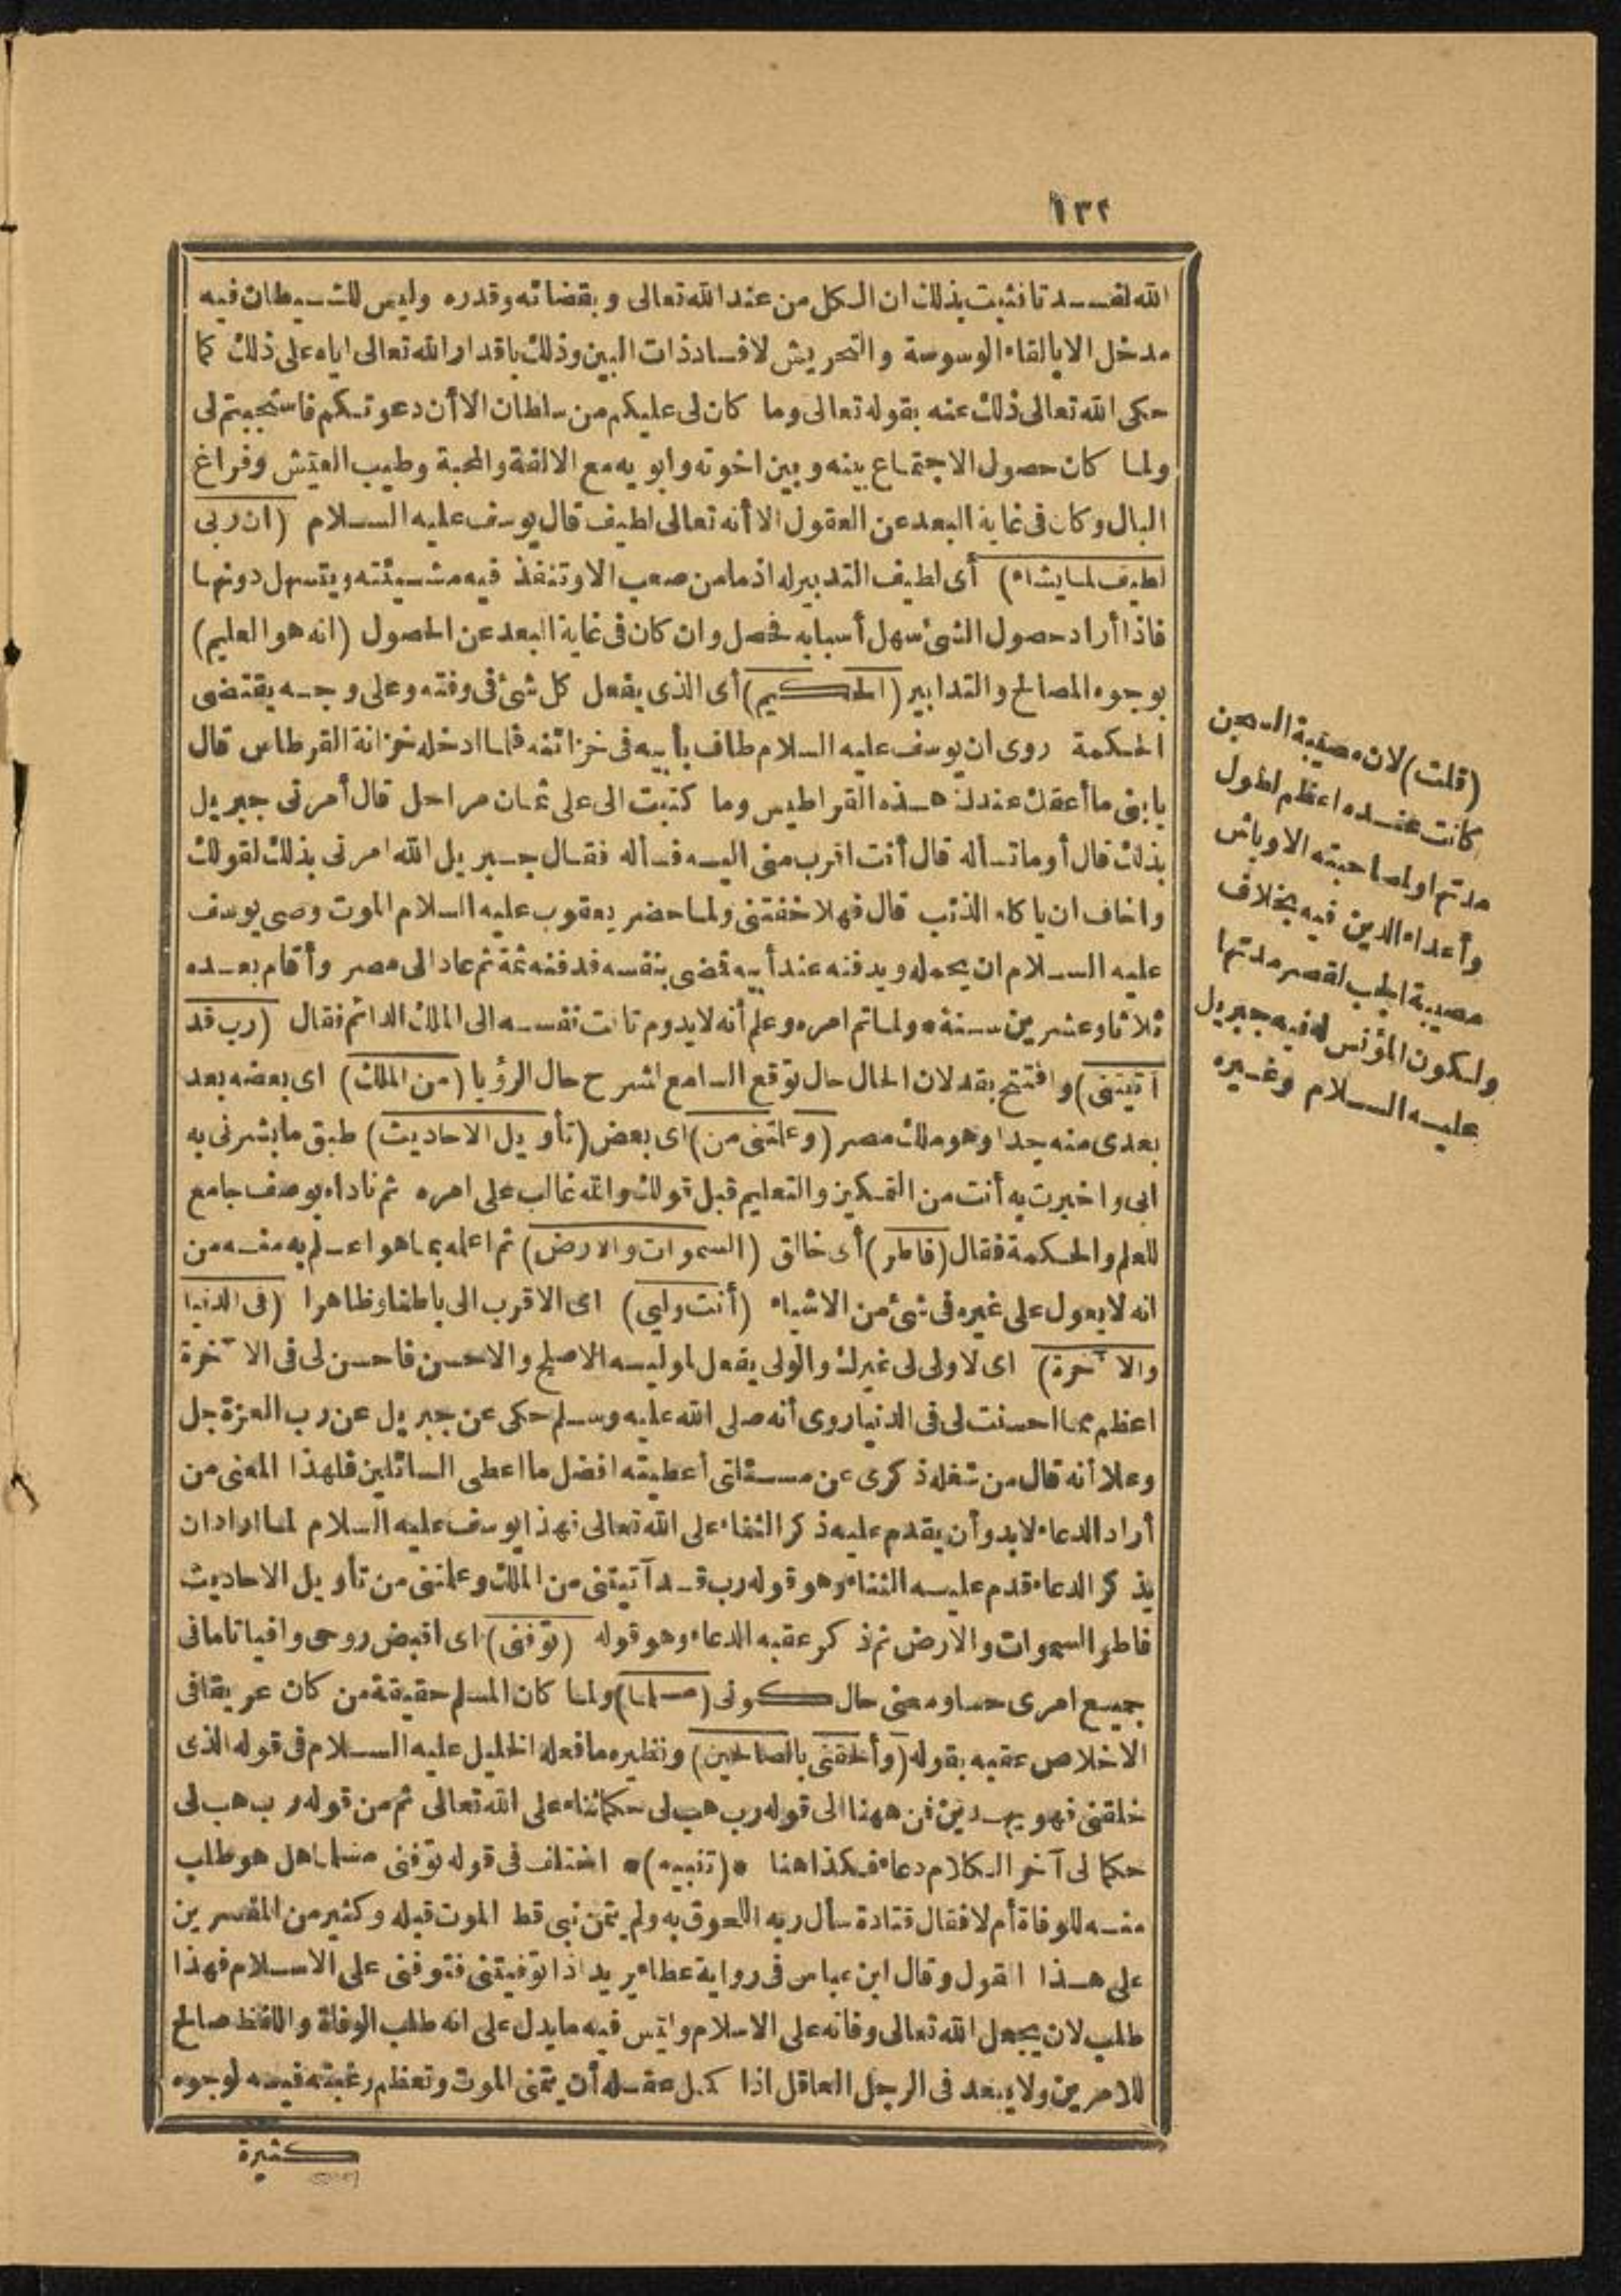 ١٣٢
الله لفسدتا فثبت بذلك ان الكل من عند الله تعالى وبقضائه وقدره وليس للشيطان فيه
مدخل الا بالقاء الوسوسة والتحريش لافساد ذات البين وذلك باقدار الله تعالى اياه على ذلك كما
حكى الله تعالى ذلك عنه بقوله تعالى وما كان لى عليكم من سلطان الا أن دعوتكم فاستجبتم لى
ولما كان حصول الاجتماع بينه وبين اخوته وابويه مع الالفة والمحبة وطيب العيش وفراغ
البال وكان فى غاية البعد عن العقول الا أنه تعالى لطيف قال يوسف عليه السلام (ان ربى
لطيف لما يشاء) أى لطيف التدبير له اذ ما من صعب الا وتنفذ فيه مشيئته ويتسهل دونها
فاذا أراد حصول الشئ سهل أسبابه فحصل وان كان فى غاية البعد عن الحصول (انه هو العليم)
بوجوه المصالح والتدابير (الحكيم) أى الذى يفعل كل شئ فى وقته وعلى وجه يقتضى
الحكمة روى ان يوسف عليه السلام طاف بأبيه فى خزائنه فلما ادخله خزانة القرطاس قال
يا بنى ما أعقك عندك هذه القراطيس وما كتبت الى على ثمان مراحل قال أمرنى جبريل
بذلك قال أوما تسأله قال أنت اقرب منى اليه فسأله فقال جبريل الله امرنى بذلك لقولك
واخاف ان ياكله الذئب قال فهلا خفتنى ولما حضر يعقوب عليه السلام الموت وصى يوسف
عليه السلام ان يحمله ويدفنه عند أبيه فمضى بنفسه فدفنه ثمة ثم عاد الى مصر وأقام بعده
ثلاثا وعشرين سنة * ولما تم امره وعلم أنه لا يدوم تاقت نفسه الى الملك الدائم فقال (رب قد
آتيتنى) وافتتح بقد لان الحال حال توقع السامع لشرح حال الرؤيا (من الملك) اى بعضه بعد
بعدى منه جدا وهو ملك مصر (وعلمتنى من) اى بعض (تأويل الاحاديث) طبق ما بشرنى به
ابى واخبرت به أنت من التمكين والتعليم قبل قولك والله غالب على امره ثم ناداه بوصف جامع
للعلم والحكمة فقال (فاطر) أى خالق (السموات والارض) ثم اعلمه بما هو اعلم به منه من
انه لا يعول على غيره فى شئ من الاشياء (أنت وليى) اى الاقرب الى باطنا وظاهرا (فى الدنيا
والآخرة) اى لا ولى لى غيرك والولى يفعل لوليه الاصلح والاحسن فاحسن لى فى الآخرة
اعظم مما احسنت لى فى الدنيا روى أنه صلى الله عليه وسلم حكى عن جبريل عن رب العزة جل
وعلا أنه قال من شغله ذكرى عن مسئلتى أعطيته افضل ما اعطى السائلين فلهذا المعنى من
أراد الدعاء لابد وأن يقدم عليه ذكر الثناء على الله تعالى فهذا يوسف عليه السلام لما اراد ان
يذكر الدعاء قدم عليه الثناء وهو قوله رب قد آتيتنى من الملك وعلمتنى من تأويل الاحاديث
فاطر السموات والارض ثم ذكر عقبه الدعاء وهو قوله (توفنى) اى اقبض روحى وافيا تاما فى
جميع امرى حسا ومعنى حال كونى (مسلما) ولما كان المسلم حقيقة من كان عريقا فى
الاخلاص عقبه بقوله (وألحقنى بالصالحين) ونظيره ما فعله الخليل عليه السلام فى قوله الذى
خلقنى فهو يهدين فمن ههنا الى قوله رب هب لى حكما ثناء على الله تعالى ثم من قوله رب هب لى
حكما لى آخر الكلام دعاء فكذا هنا * (تنبيه) * اختلف فى قوله توفنى مسلما هل هو طلب
منه للوفاة أم لا فقال قتادة سأل ربه اللحوق به ولم يتمن نبى قط الموت قبله وكثير من المفسرين
على هذا القول وقال ابن عباس فى رواية عطاء يريد اذا توفيتنى فتوفنى على الاسلام فهذا
طلب لان يجعل الله تعالى وفاته على الاسلام وليس فيه ما يدل على انه طلب الوفاة واللفظ صالح
للامرين ولا يبعد فى الرجل العاقل اذا كمل عقله أن يتمنى الموت وتعظم رغبته فيه لوجوه
كثيرة
(قلت) لان مصيبة السجن
كانت عنده اعظم لطول
مدتها ولمصاحبته الاوباش
وأعداء الدين فيه بخلاف
مصيبة الجب لقصر مدتها
ولكون المؤنس له فيه جبريل
عليه السلام وغيره